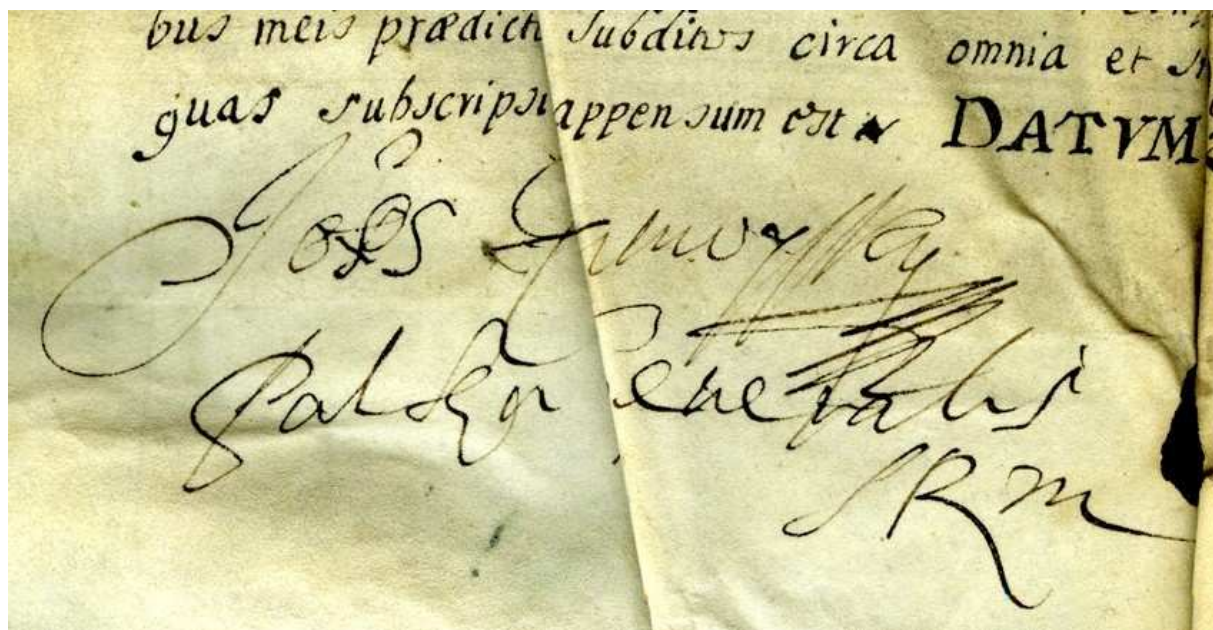 bus meis prædict Subditos circa omnia et
quas subscripsi appensum est DATVM
Joes Zamoyski
Generalis
SRM